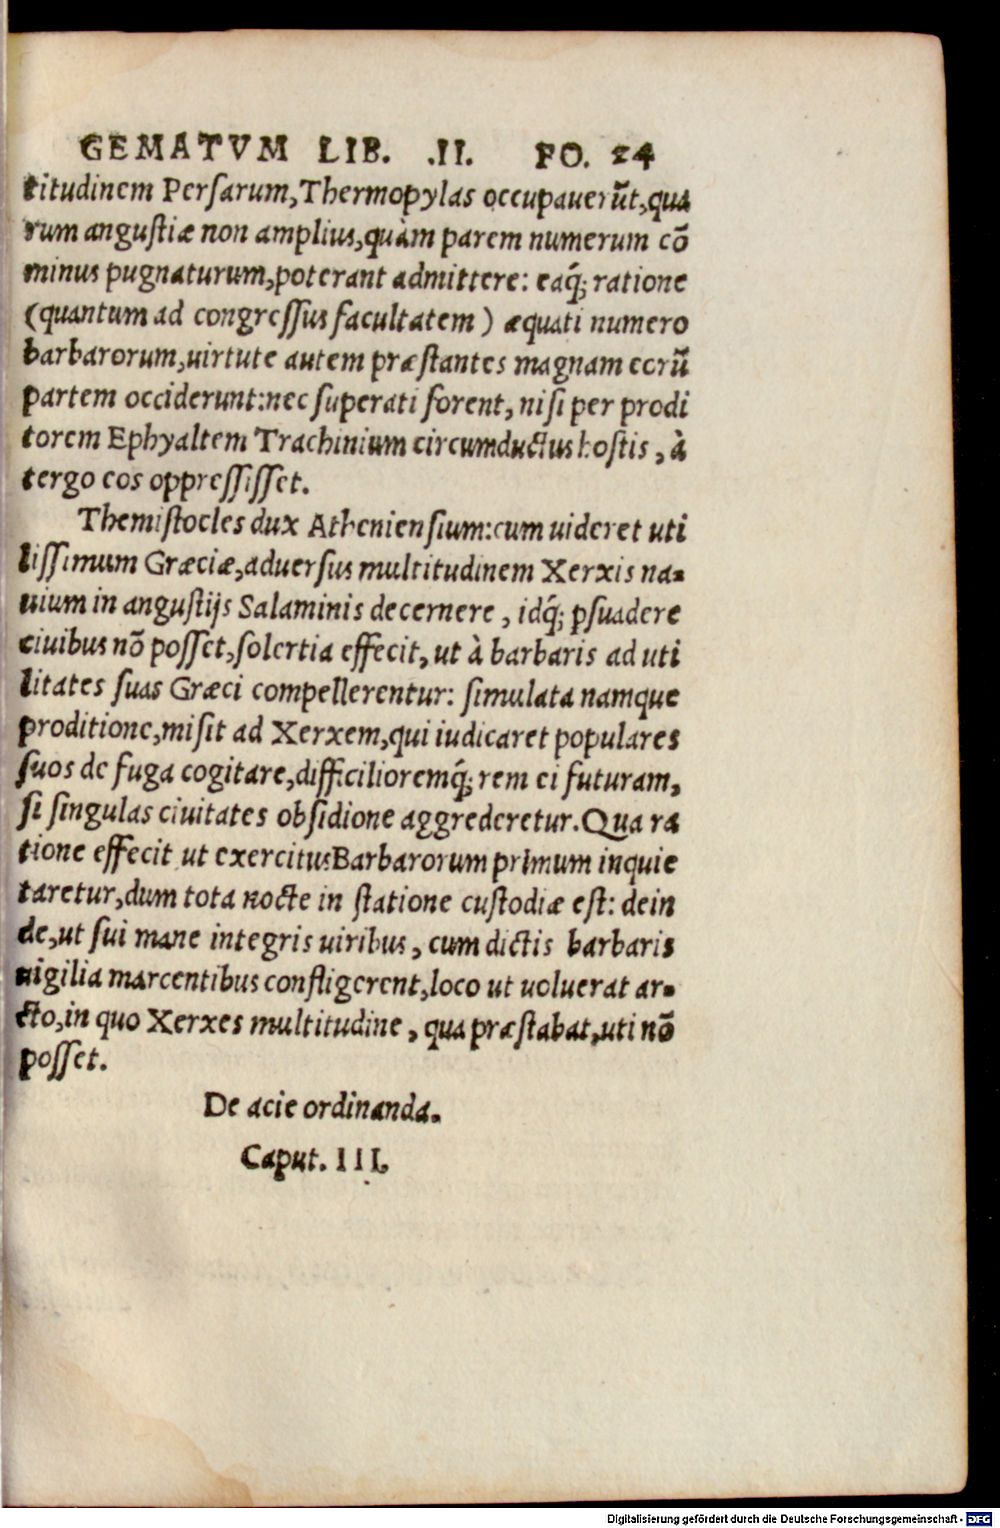 GEMATVM LIB. .II. FO. 24
titudinem Perſarum,Thermopylas occupauerũt,qua
rum anguſtiæ non amplius,quàm parem numerum cō
minus pugnaturum,poterant admittere: eaq́; ratione
(quantum ad congreſſus facultatem ) æquati numero
barbarorum,uirtute autem præſtantes magnam eorũ
partem occiderunt:nec ſuperati forent, niſi per prodi
torem Ephyaltem Trachinium circumductus hoſtis , à
tergo eos oppreſſiſſet.
Themiſtocles dux Athenienſium:cum uideret uti
liſſimum Græciæ,aduerſus multitudinem Xerxis na-
uium in anguſtijs Salaminis decernere , idq́; ꝑſuadere
ciuibus nō poſſet,ſolertia effecit, ut à barbaris ad uti
litates ſuas Græci compellerentur: ſimulata namque
proditione,miſit ad Xerxem,qui iudicaret populares
ſuos de fuga cogitare,difficilioremq́; rem ei futuram,
ſi ſingulas ciuitates obſidione aggrederetur.Qua ra
tione effecit ut exercitus Barbarorum primum inquie
taretur,dum tota nocte in ſtatione cuſtodiæ eſt: dein
de,ut ſui mane integris uiribus , cum dictis barbaris
uigilia marcentibus confligerent,loco ut uoluerat ar-
cto,in quo Xerxes multitudine , qua præſtabat,uti nō
poſſet.
De acie ordinanda.
Caput. III.
Digitalisierung gefördert durch die Deutsche Forschungsgemeinschaft - DFG